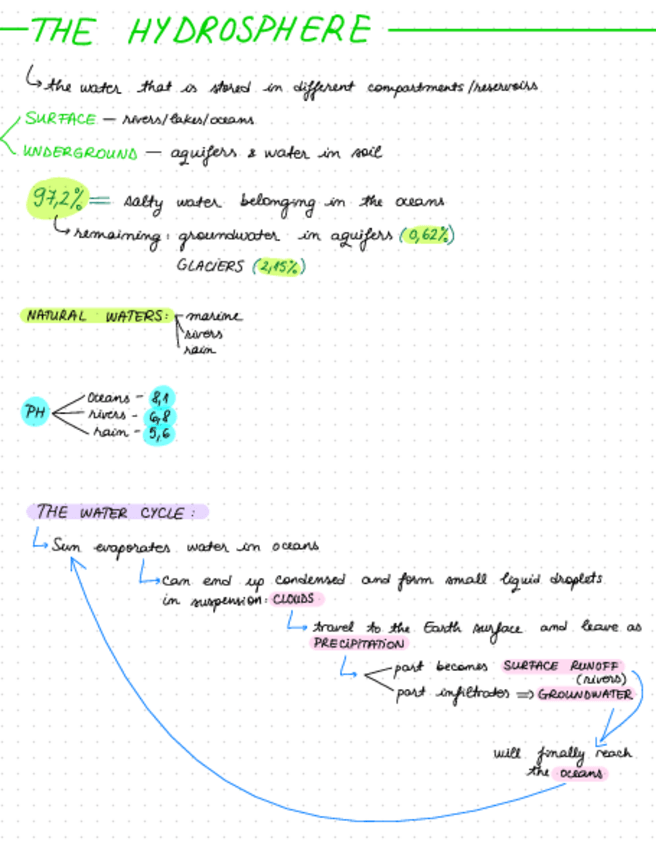 THE HYDROSPHERE
the water that is stored in different compartments/reservoirs
SURFACE — rivers/lakes/oceans
UNDERGROUND — aquifers & water in soil
97,2% = salty water belonging in the oceans
remaining: groundwater in aquifers (0,62%)
GLACIERS (2,15%)
NATURAL WATERS: marine
rivers
rain
PH
oceans - 8,1
rivers - 6,8
rain - 5,6
THE WATER CYCLE:
Sun evaporates water in oceans
can end up condensed and form small liquid droplets
in suspension: CLOUDS
travel to the Earth surface and leave as
PRECIPITATION
part becomes SURFACE RUNOFF
(rivers)
part infiltrates ⇒ GROUNDWATER
will finally reach
the oceans